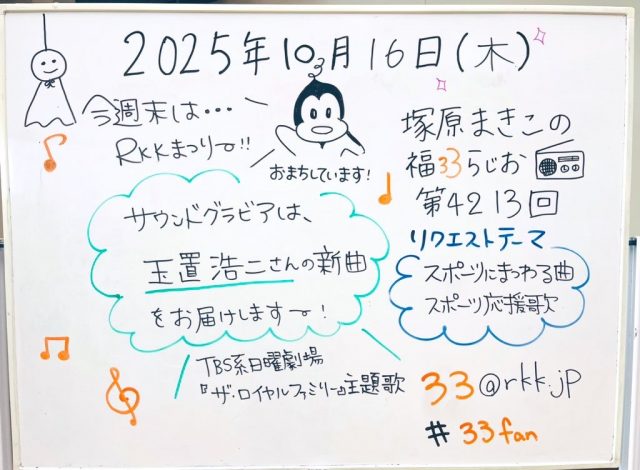 2025年10月16日(木)
今週末は…
RKKまつり〜!!
おまちしています!
塚原まきこの
福33らじお
第4213回
リクエストテーマ
スポーツにまつわる曲
スポーツ応援歌
サウンドグラビアは、
玉置浩二さんの新曲
をお届けします〜!
TBS系日曜劇場
『ザ・ロイヤルファミリー』主題歌
33@rkk.jp
#33fan